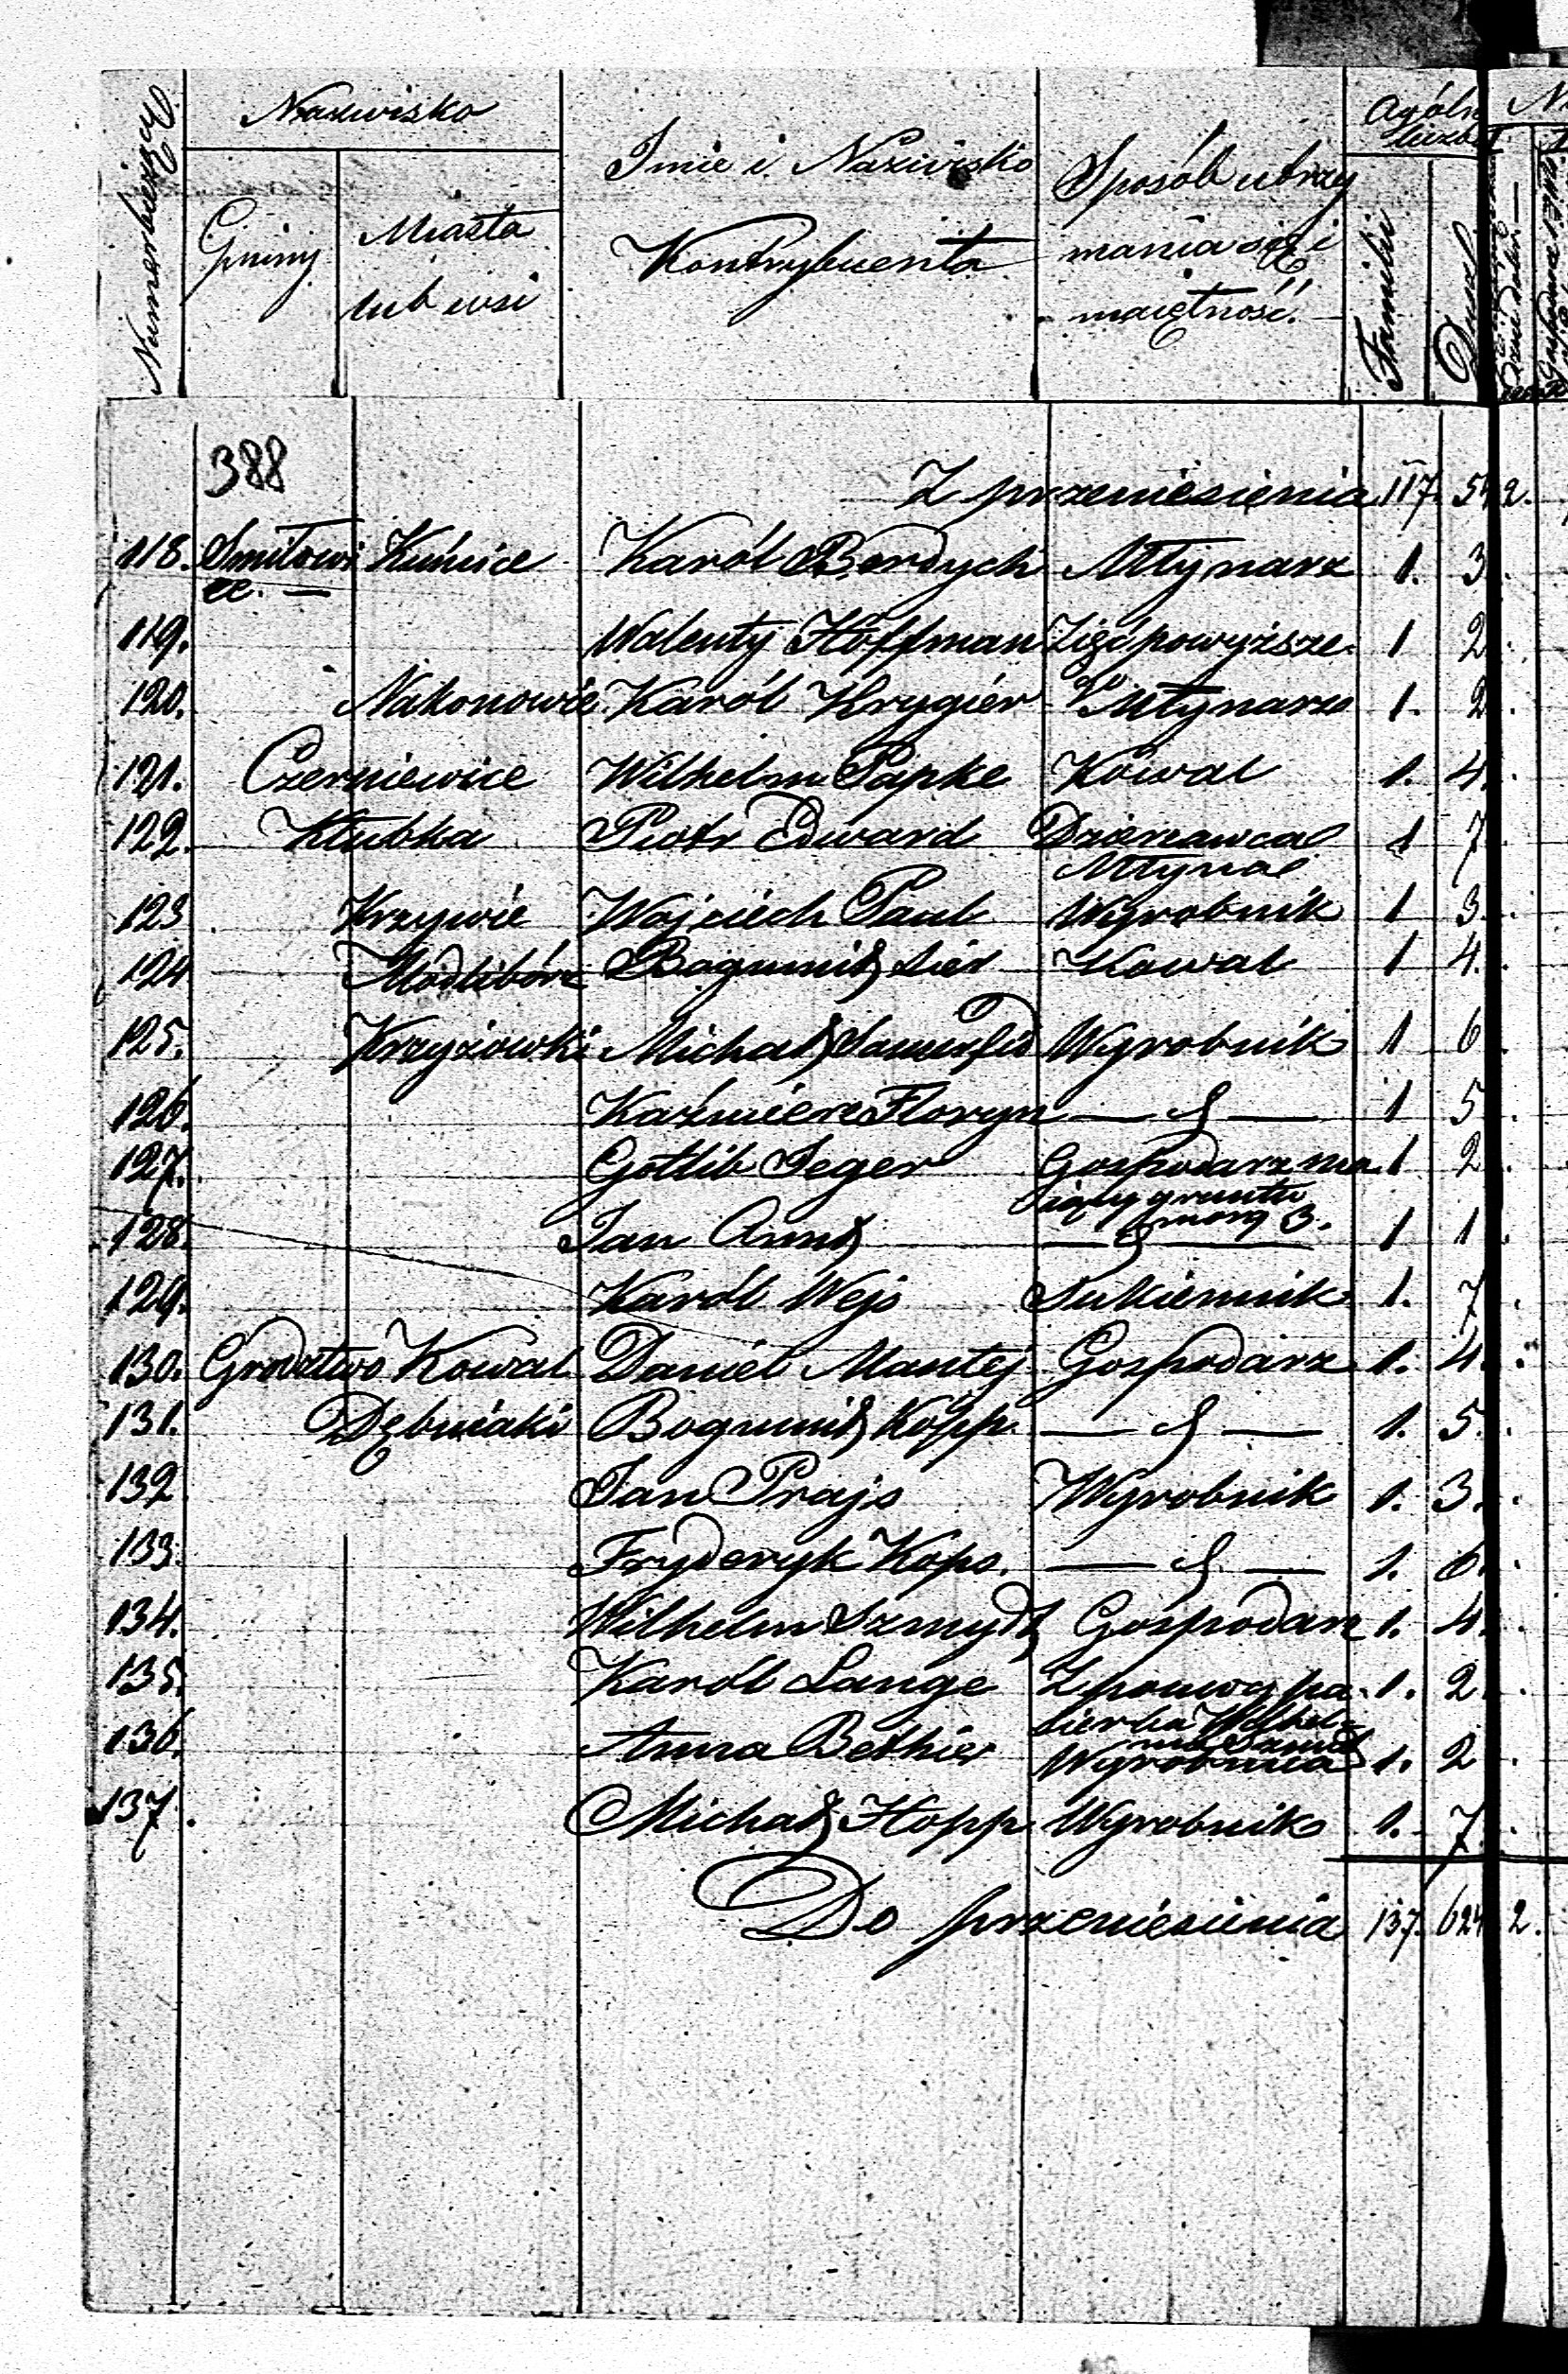 Numer bieżący
Nazwisko
Gminy
Miasta
lub wsi
Imie i Nazwisko
Kontrybuenta
Sposób utrzy
mania się i
maiętność.
Familii
Dusz
388
Z przeniesienia 117. 54 2.
118. Smiłowi Kuńice Karól Berdych Młynarz 1. 3
ce. —
119. Walenty Hoffman 1 2
120. Nakonowie Karól Krygiér Młynarz 1. 2
121. Czerniewice Wilhelm Papke Kowal 1. 4
122. Kłubka Piotr Edward Dzierzawca 1 7
Młyna
123 Krzywie Wojciech Paul Wyrobnik 1 3
124 Modlibórz Bogumił Kowal 1 4
125. Krzyżowki Michał Wyrobnik 1 6
126. Floryn 1 5
127. Gotlib Jeger Gospodarz ma 1 2
iący gruntu
morg 3.
128. Jan 1 1
129. Karól Wejs Sukiennik 1. 7
130. Grodztwo Kowal Daniel Mantej Gospodarz 1. 4.
131. Dębniaki Bogumił Kopp. 1. 5.
132 Jan Prajs Wyrobnik 1. 3.
133. Fryderyk Kops. 1. 6.
134. Wilhelm Szmydt Gospodarz 1. 4.
135. Karól Lange Z pomocy pa 1. 2
sierba Wilhel-
ma
136. Anna Wyrobnica 1. 2
137. Michał Hopp Wyrobnik 1. 7
Do przeniesienia 137. 624 2.